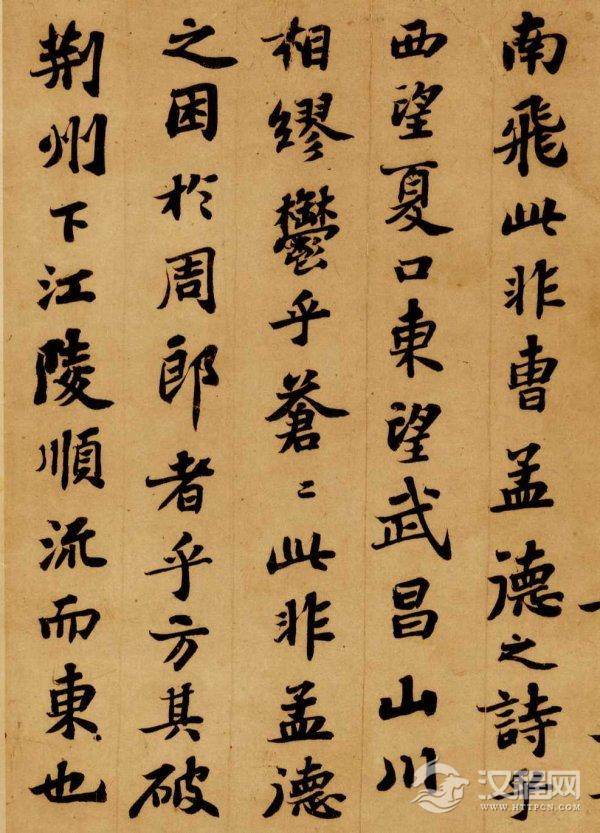 南飛此非曹孟德之詩乎
西望夏口東望武昌山川
相繆鬱乎蒼〻此非孟德
之困於周郎者乎方其破
荆州下江陵順流而東也
汉程网
WWW.HTTPCN.COM